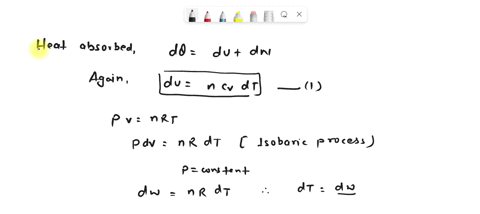 Heat absorbed, dθ = dU + dW
Again, dU = n Cv dT —— (1)
P V = nRT
PdV = nR dT [ Isobaric process)
P = constent
dW = nR dT ∴ dT = dW